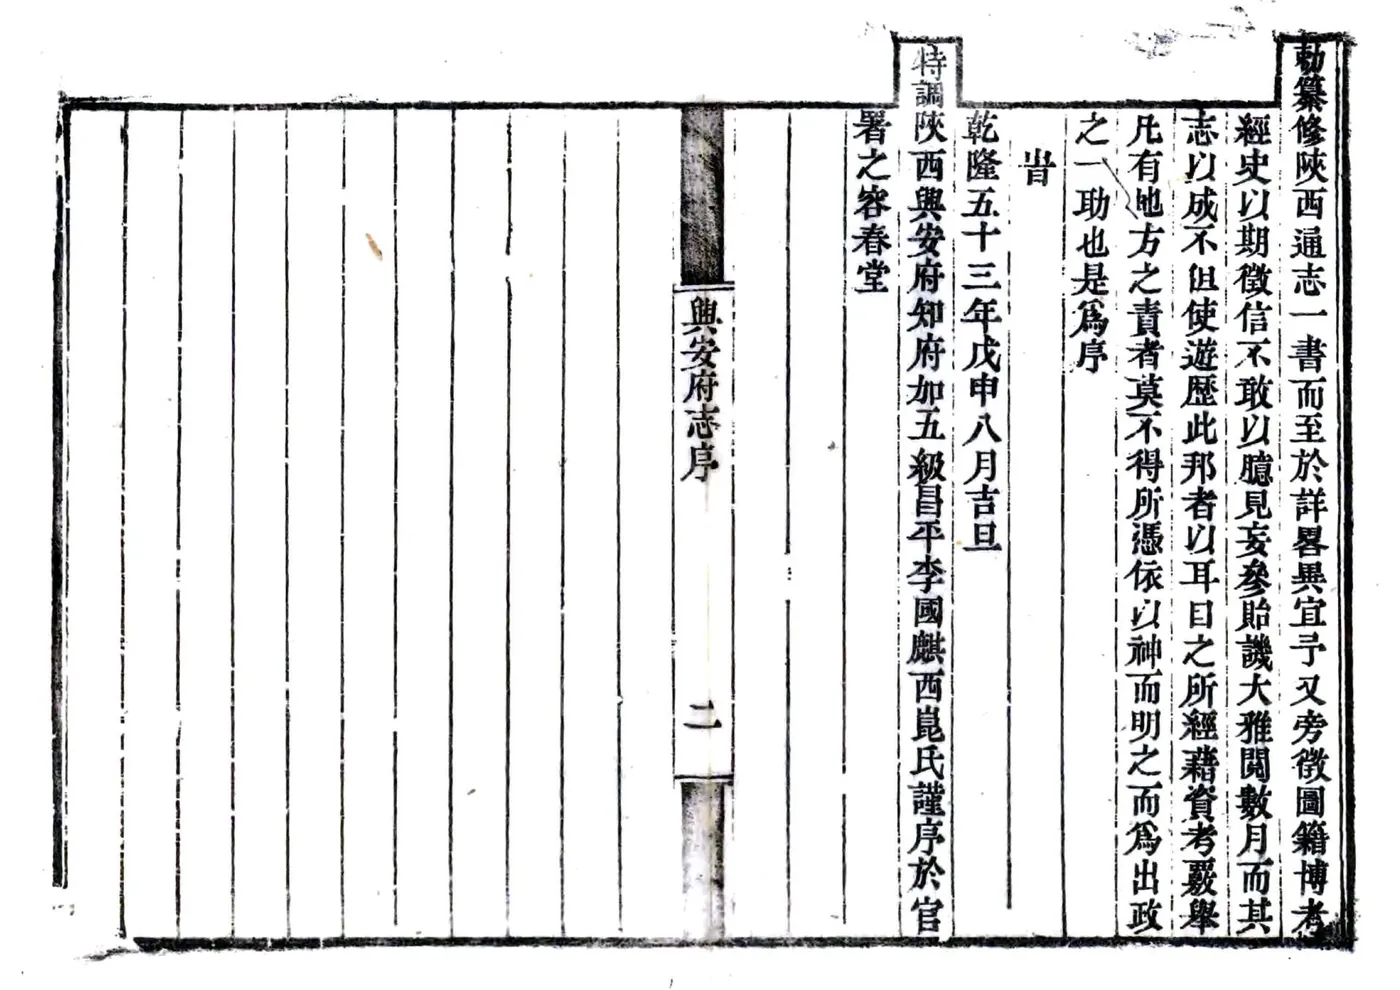 勅纂修陝西通志一書而至於詳畧異宜予又旁徵圖籍博考
經史以期徵信不敢以臆見妄參貽譏大雅閱數月而其
志以成不但使遊歷此邦者以耳目之所經藉資考覈舉
凡有地方之責者莫不得所憑依以神而明之而爲出政
之一助也是爲序
旹
乾隆五十三年戊申八月吉旦
特調陝西興安府知府加五級昌平李國麒西崑氏謹序於官
署之容春堂
興安府志序
二